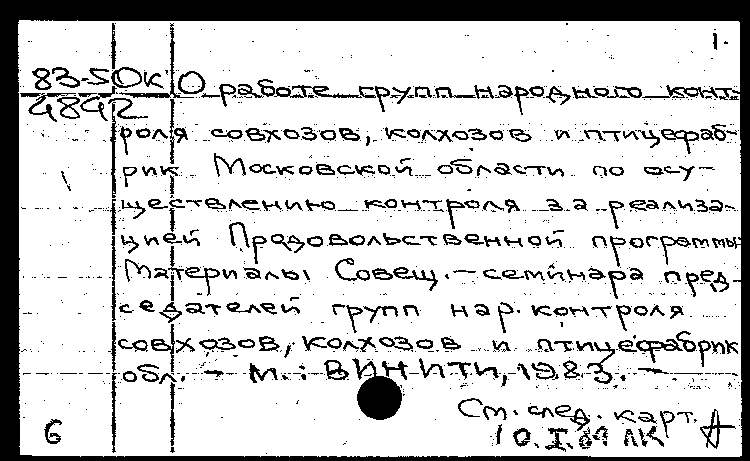 1.
83-5Ок О работе групп народного конт-
4892
роля совхозов, колхозов и птицефаб-
рик Московской области по осу-
ществлению контроля за реализа-
цией Продовольственной программы:
Материалы Совещ.-семинара пред-
седателей групп нар. контроля
совхозов, колхозов и птицефабрик
обл. - М.: ВИНИТИ, 1983. -
См. след. карт.
6 10.I.84 ЛК